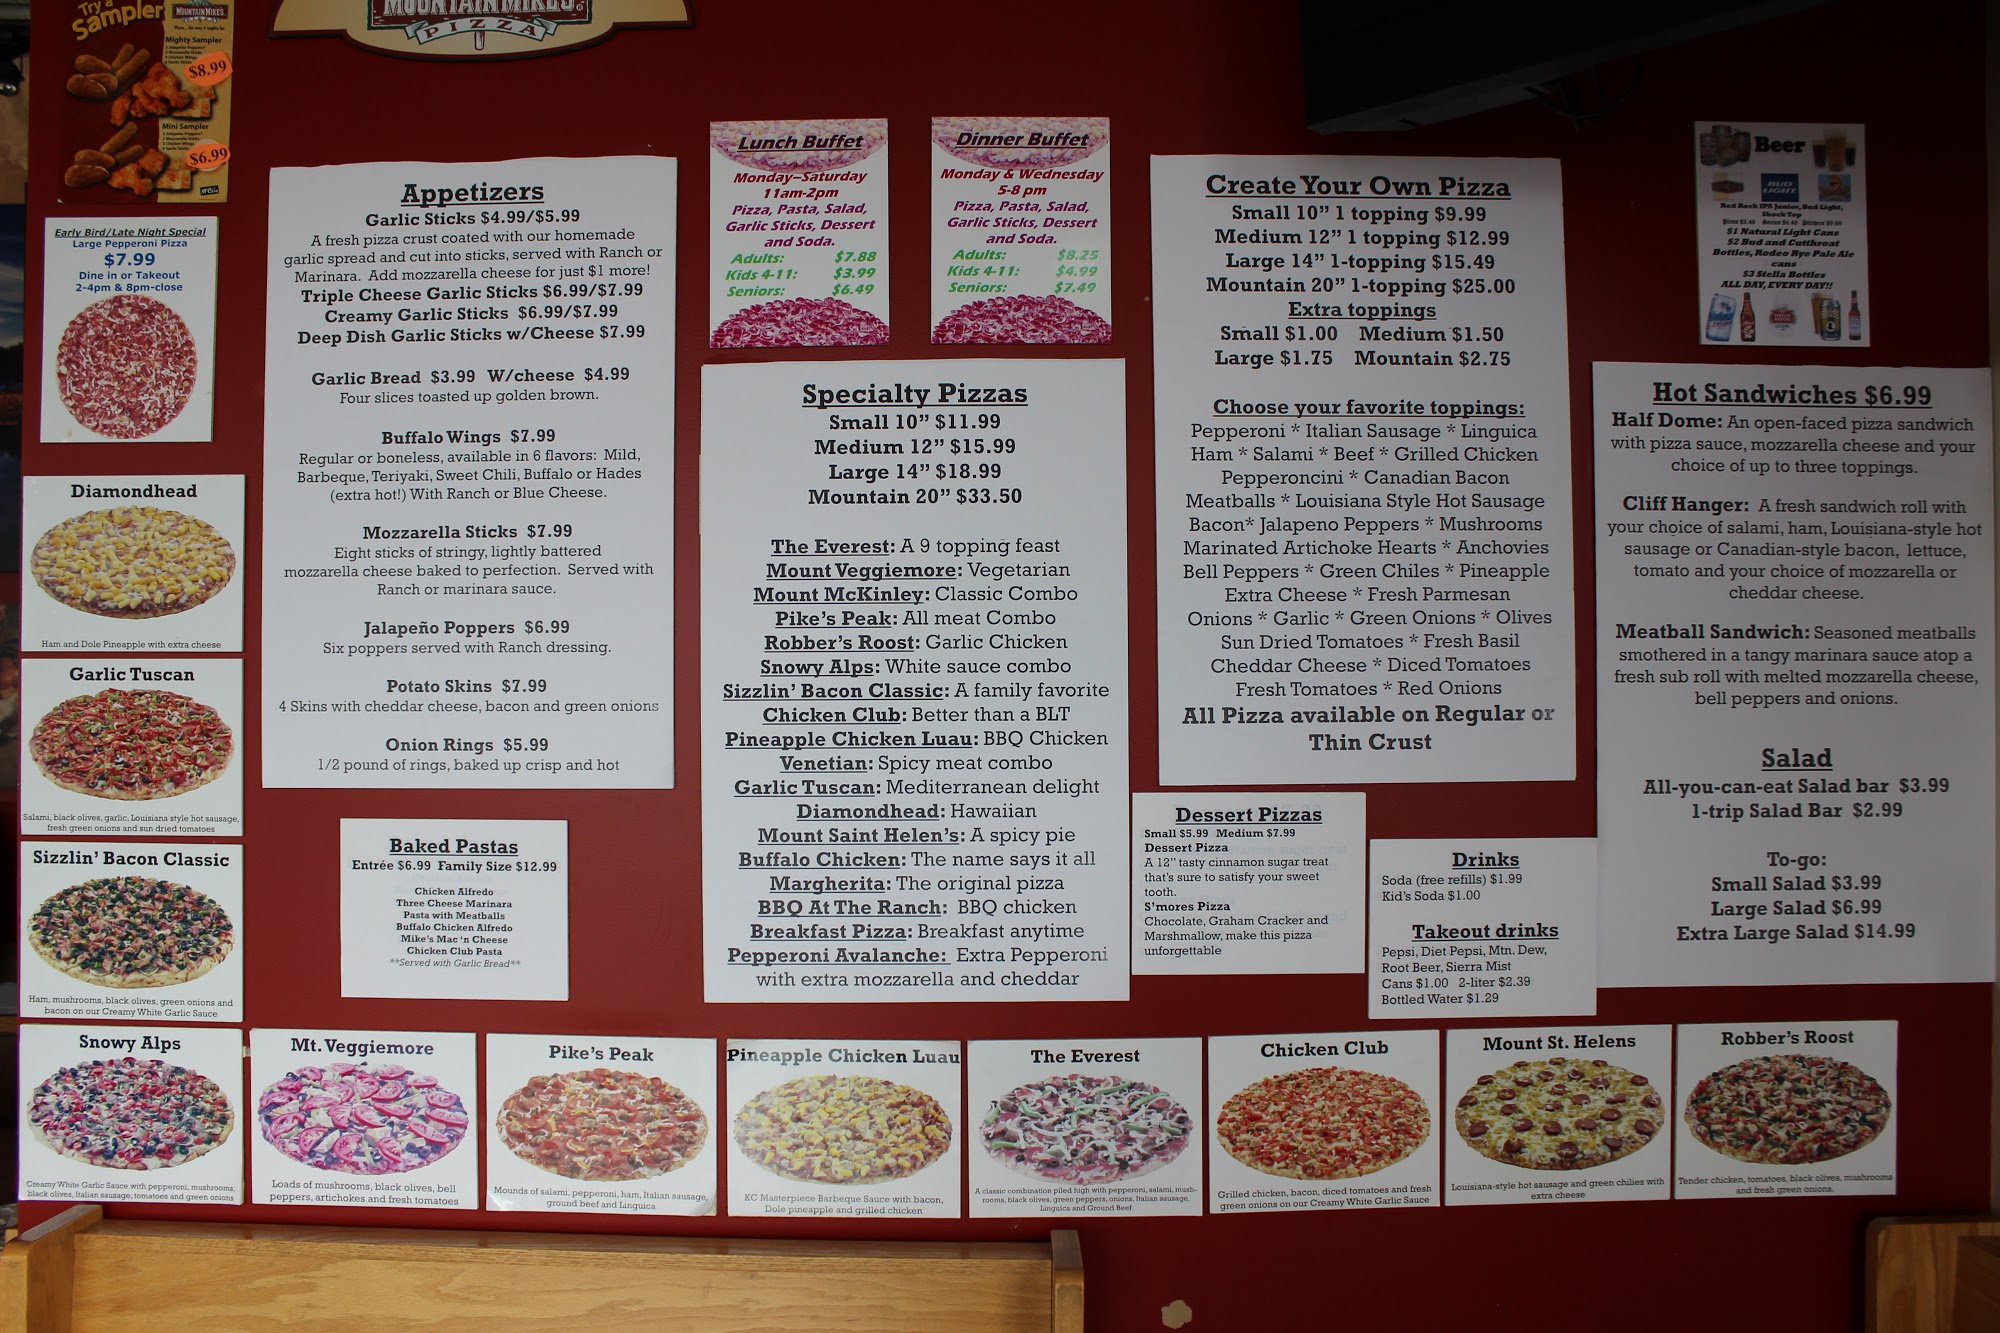 Try a
Sampler
MOUNTAIN MIKE'S
Mighty Sampler
$8.99
Mini Sampler
$6.99
MOUNTAIN MIKE'S
PIZZA
Early Bird/Late Night Special
Large Pepperoni Pizza
$7.99
Dine in or Takeout
2-4pm & 8pm-close
Appetizers
Garlic Sticks $4.99/$5.99
A fresh pizza crust coated with our homemade
garlic spread and cut into sticks, served with Ranch or
Marinara. Add mozzarella cheese for just $1 more!
Triple Cheese Garlic Sticks $6.99/$7.99
Creamy Garlic Sticks $6.99/$7.99
Deep Dish Garlic Sticks w/Cheese $7.99
Garlic Bread $3.99 W/cheese $4.99
Four slices toasted up golden brown.
Buffalo Wings $7.99
Regular or boneless, available in 6 flavors: Mild,
Barbeque, Teriyaki, Sweet Chili, Buffalo or Hades
(extra hot!) With Ranch or Blue Cheese.
Mozzarella Sticks $7.99
Eight sticks of stringy, lightly battered
mozzarella cheese baked to perfection. Served with
Ranch or marinara sauce.
Jalapeño Poppers $6.99
Six poppers served with Ranch dressing.
Potato Skins $7.99
4 Skins with cheddar cheese, bacon and green onions
Onion Rings $5.99
1/2 pound of rings, baked up crisp and hot
Baked Pastas
Entrée $6.99 Family Size $12.99
Chicken Alfredo
Three Cheese Marinara
Pasta with Meatballs
Buffalo Chicken Alfredo
Mike's Mac 'n Cheese
Chicken Club Pasta
**Served with Garlic Bread**
Lunch Buffet
Monday-Saturday
11am-2pm
Pizza, Pasta, Salad,
Garlic Sticks, Dessert
and Soda.
Adults: $7.88
Kids 4-11: $3.99
Seniors: $6.49
Dinner Buffet
Monday & Wednesday
5-8 pm
Pizza, Pasta, Salad,
Garlic Sticks, Dessert
and Soda.
Adults: $8.25
Kids 4-11: $4.99
Seniors: $7.49
Specialty Pizzas
Small 10" $11.99
Medium 12" $15.99
Large 14" $18.99
Mountain 20" $33.50
The Everest: A 9 topping feast
Mount Veggiemore: Vegetarian
Mount McKinley: Classic Combo
Pike's Peak: All meat Combo
Robber's Roost: Garlic Chicken
Snowy Alps: White sauce combo
Sizzlin' Bacon Classic: A family favorite
Chicken Club: Better than a BLT
Pineapple Chicken Luau: BBQ Chicken
Venetian: Spicy meat combo
Garlic Tuscan: Mediterranean delight
Diamondhead: Hawaiian
Mount Saint Helen's: A spicy pie
Buffalo Chicken: The name says it all
Margherita: The original pizza
BBQ At The Ranch: BBQ chicken
Breakfast Pizza: Breakfast anytime
Pepperoni Avalanche: Extra Pepperoni
with extra mozzarella and cheddar
Create Your Own Pizza
Small 10" 1 topping $9.99
Medium 12" 1 topping $12.99
Large 14" 1-topping $15.49
Mountain 20" 1-topping $25.00
Extra toppings
Small $1.00 Medium $1.50
Large $1.75 Mountain $2.75
Choose your favorite toppings:
Pepperoni * Italian Sausage * Linguica
Ham * Salami * Beef * Grilled Chicken
Pepperoncini * Canadian Bacon
Meatballs * Louisiana Style Hot Sausage
Bacon* Jalapeno Peppers * Mushrooms
Marinated Artichoke Hearts * Anchovies
Bell Peppers * Green Chiles * Pineapple
Extra Cheese * Fresh Parmesan
Onions * Garlic * Green Onions * Olives
Sun Dried Tomatoes * Fresh Basil
Cheddar Cheese * Diced Tomatoes
Fresh Tomatoes * Red Onions
All Pizza available on Regular or
Thin Crust
Dessert Pizzas
Small $5.99 Medium $7.99
Dessert Pizza
A 12" tasty cinnamon sugar treat
that's sure to satisfy your sweet
tooth.
S'mores Pizza
Chocolate, Graham Cracker and
Marshmallow, make this pizza
unforgettable
Drinks
Soda (free refills) $1.99
Kid's Soda $1.00
Takeout drinks
Pepsi, Diet Pepsi, Mtn. Dew,
Root Beer, Sierra Mist
Cans $1.00 2-liter $2.39
Bottled Water $1.29
Beer
BUD LIGHT
Red Rock IPA Junior, Bud Light,
Shock Top
$1 Natural Light Cans
$2 Bud and Cutthroat
Bottles, Rodeo Rye Pale Ale
cans
$3 Stella Bottles
ALL DAY, EVERY DAY!!
Hot Sandwiches $6.99
Half Dome: An open-faced pizza sandwich
with pizza sauce, mozzarella cheese and your
choice of up to three toppings.
Cliff Hanger: A fresh sandwich roll with
your choice of salami, ham, Louisiana-style hot
sausage or Canadian-style bacon, lettuce,
tomato and your choice of mozzarella or
cheddar cheese.
Meatball Sandwich: Seasoned meatballs
smothered in a tangy marinara sauce atop a
fresh sub roll with melted mozzarella cheese,
bell peppers and onions.
Salad
All-you-can-eat Salad bar $3.99
1-trip Salad Bar $2.99
To-go:
Small Salad $3.99
Large Salad $6.99
Extra Large Salad $14.99
Diamondhead
Ham and Dole Pineapple with extra cheese
Garlic Tuscan
Salami, black olives, garlic, Louisiana style hot sausage,
fresh green onions and sun dried tomatoes
Sizzlin' Bacon Classic
Ham, mushrooms, black olives, green onions and
bacon on our Creamy White Garlic Sauce
Snowy Alps
Creamy White Garlic Sauce with pepperoni, mushrooms,
black olives, Italian sausage, tomatoes and green onions
Mt. Veggiemore
Loads of mushrooms, black olives, bell
peppers, artichokes and fresh tomatoes
Pike's Peak
Mounds of salami, pepperoni, ham, Italian sausage,
ground beef and Linguica
Pineapple Chicken Luau
KC Masterpiece Barbeque Sauce with bacon,
Dole pineapple and grilled chicken
The Everest
A classic combination piled high with pepperoni, salami, mush-
rooms, black olives, green peppers, onions, Italian sausage,
Linguica and Ground Beef
Chicken Club
Grilled chicken, bacon, diced tomatoes and fresh
green onions on our Creamy White Garlic Sauce
Mount St. Helens
Louisiana-style hot sausage and green chilies with
extra cheese
Robber's Roost
Tender chicken, tomatoes, black olives, mushrooms
and fresh green onions.